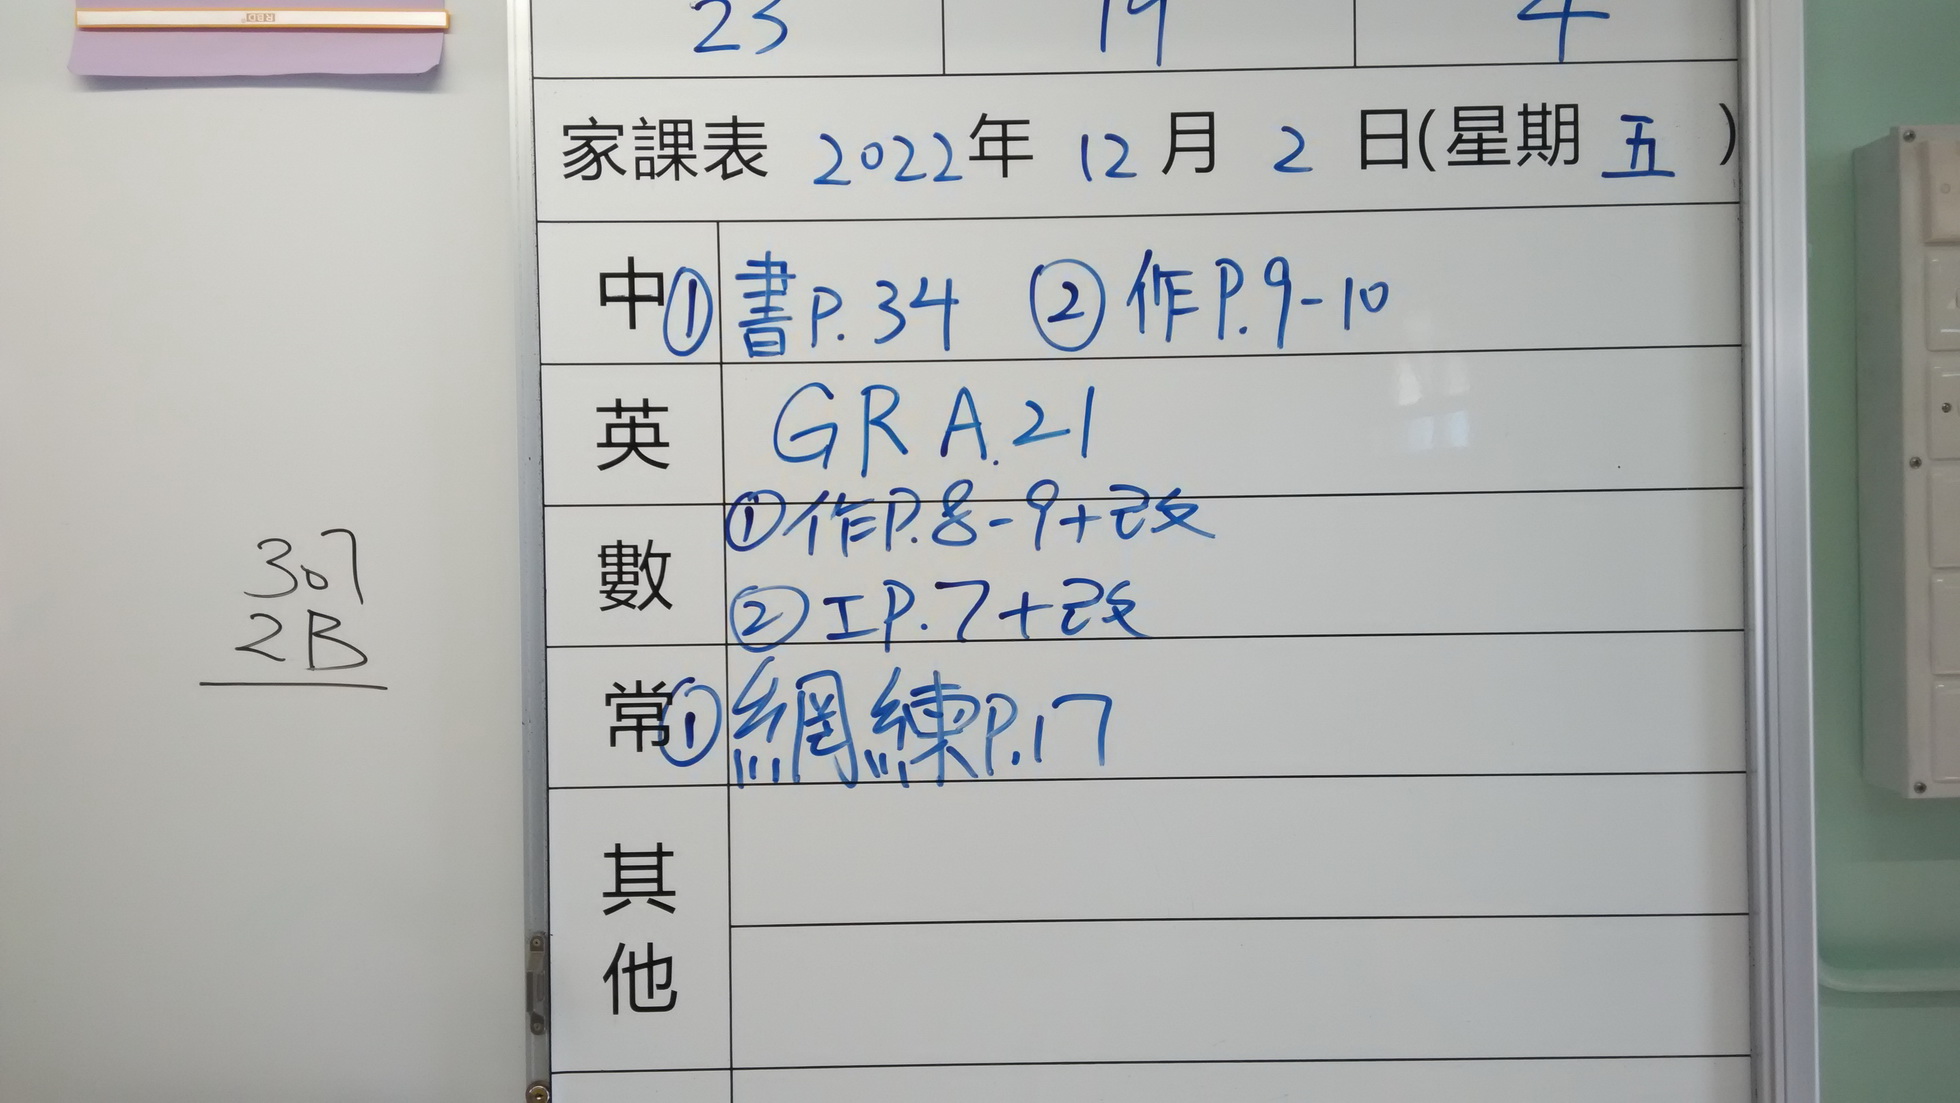 23 19 4
家課表 2022年 12月 2日(星期五)
中 ① 書P.34 ② 作P.9-10
英 GR A.21
數 ① 作P.8-9+改
② 工P.7+改
常 ① 網練P.17
其他
307
2B